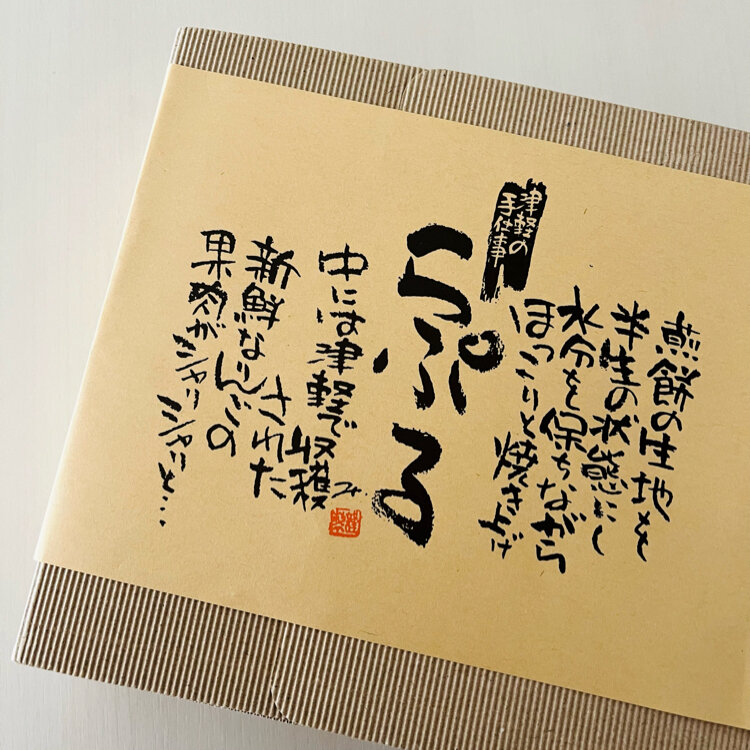 煎餅の生地を
半生の状態にし
水分を保ちながら
ほっこりと焼き上げ
津軽の
手仕事
らぷる
み
中には津軽で収穫
された
新鮮なりんごの
果肉がシャリシャリと…